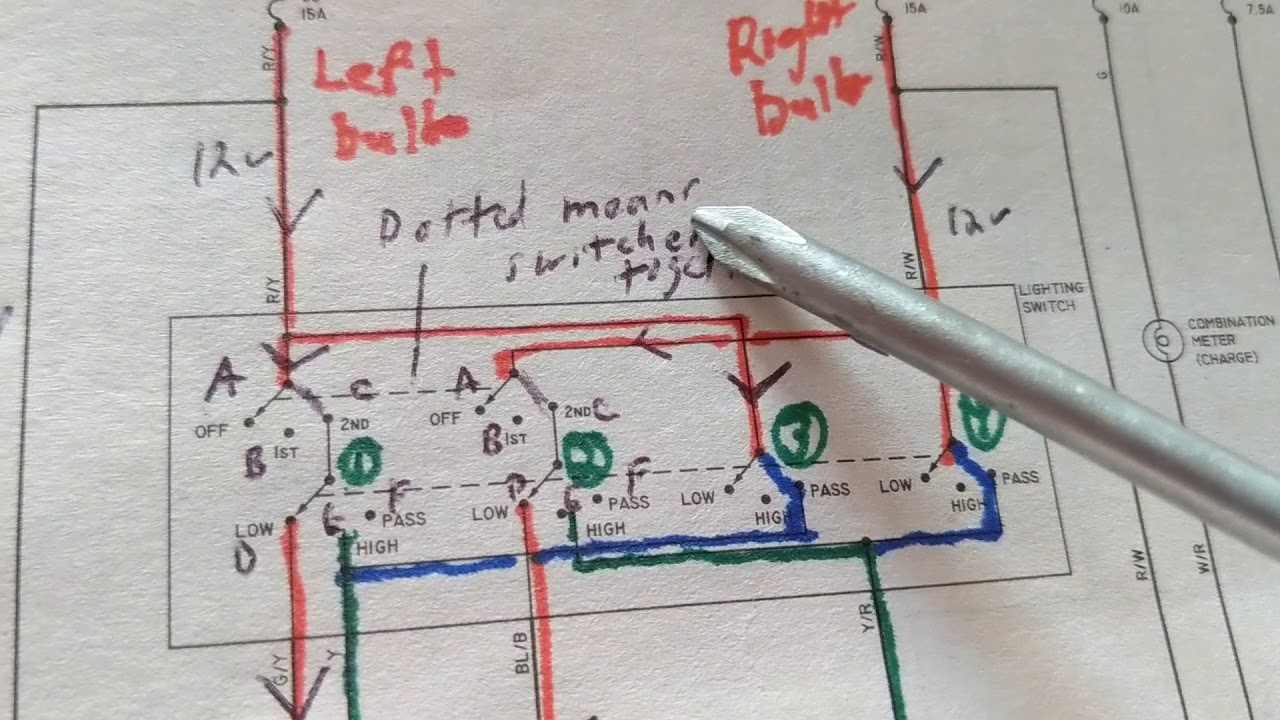 15A
15A
10A
7.5A
R/Y
R/W
G
Left
bulb
Right
bulb
12v
Dotted means
switches
12v
R/Y
R/W
LIGHTING
SWITCH
COMBINATION
METER
(CHARGE)
A
C
A
OFF
2ND
OFF
2ND
C
B
IST
B
IST
1
2
3
F
D
F
LOW
E
PASS
LOW
E
PASS
LOW
PASS
LOW
PASS
D
HIGH
HIGH
HIGH
HIGH
G/Y
Y
BL/B
Y/R
R/W
W/R